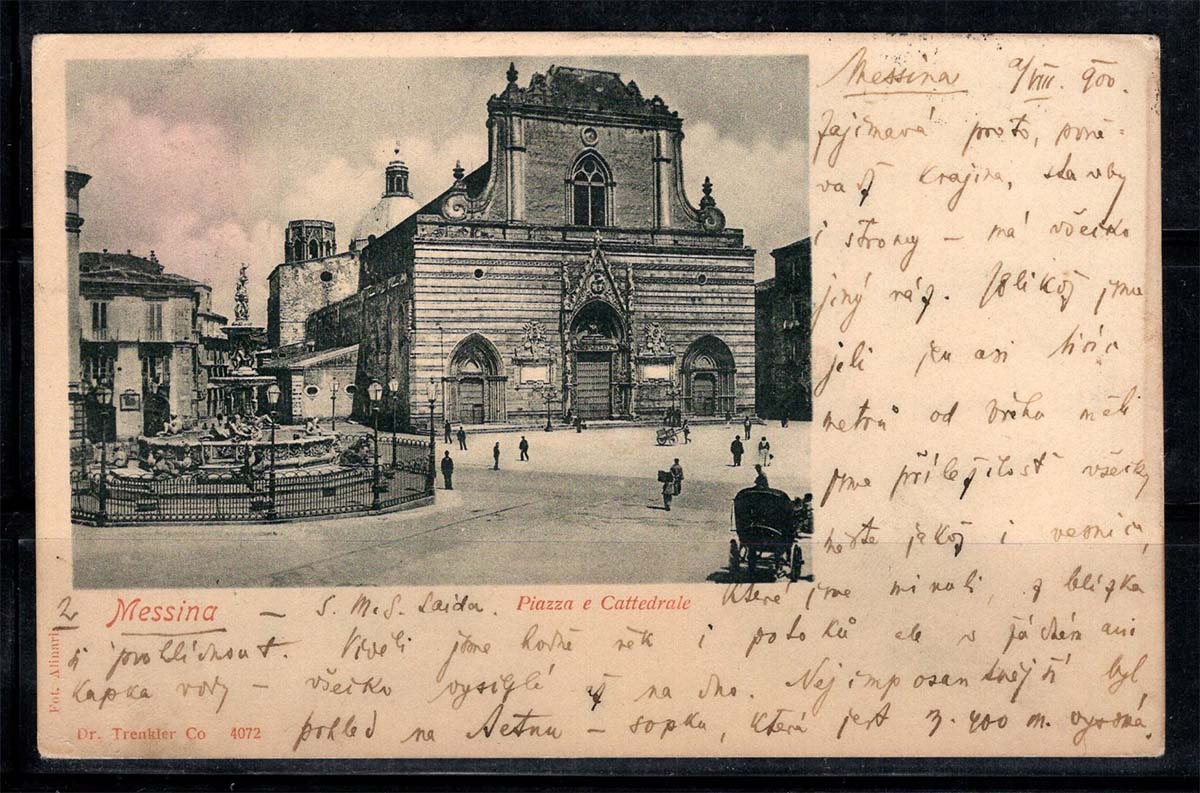 Messina 9/VIII. 900.
Zajímavá proto, poně-
vadž krajina, stavby
i stromy – má všecko
jiný ráz. Jelikož jsme
jeli jen asi
metrů od břehu měli
jsme příležitost všecky
města jakož i vesnice,
Messina – S. M. S. Saida. Piazza e Cattedrale které jsme minuli, z blízka
si prohlédnout. Viděli jsme hodně řek i potoků ale v žádném ani
kapka vody – všecko vyschlé až na dno. Nejimposantnější byl
pohled na Aetnu – sopku, která jest 3.400 m. vysoká.
2
Fot. Alinari
Dr. Trenkler Co 4072